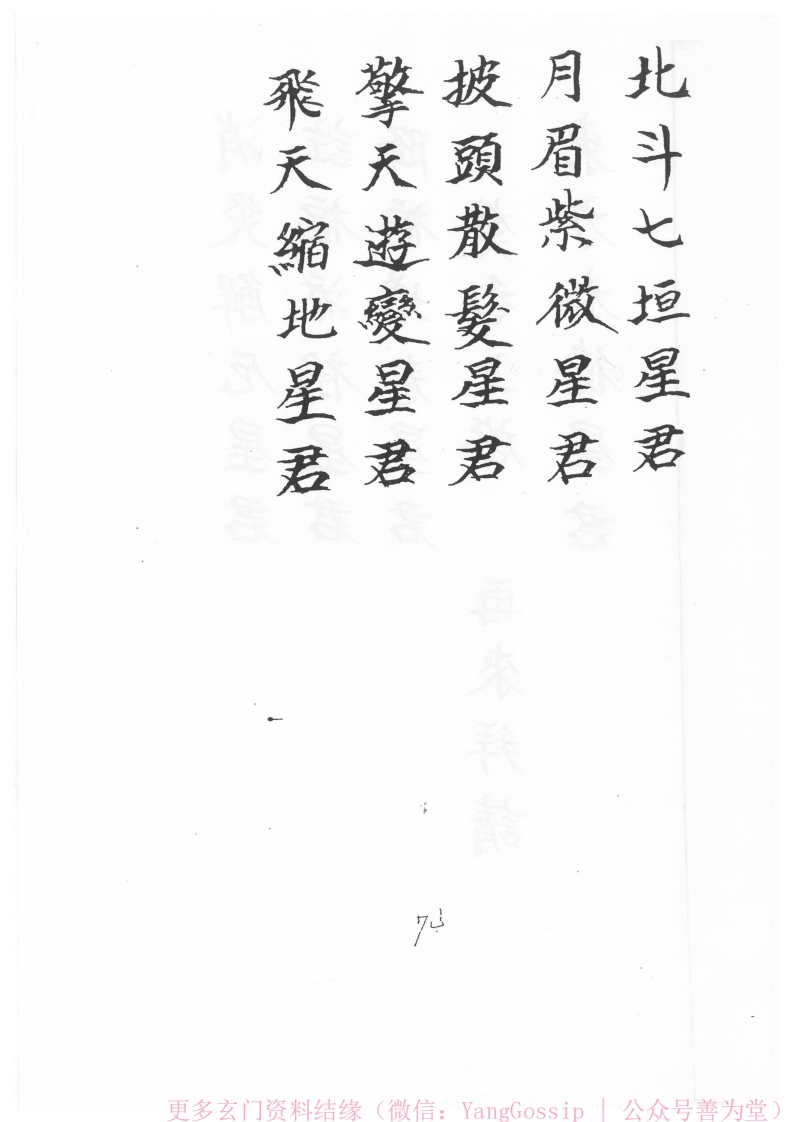 北斗七垣星君
月眉紫微星君
披頭散髮星君
擎天遊變星君
飛天縮地星君
更多玄门资料结缘（微信：YangGossip | 公众号善为堂）